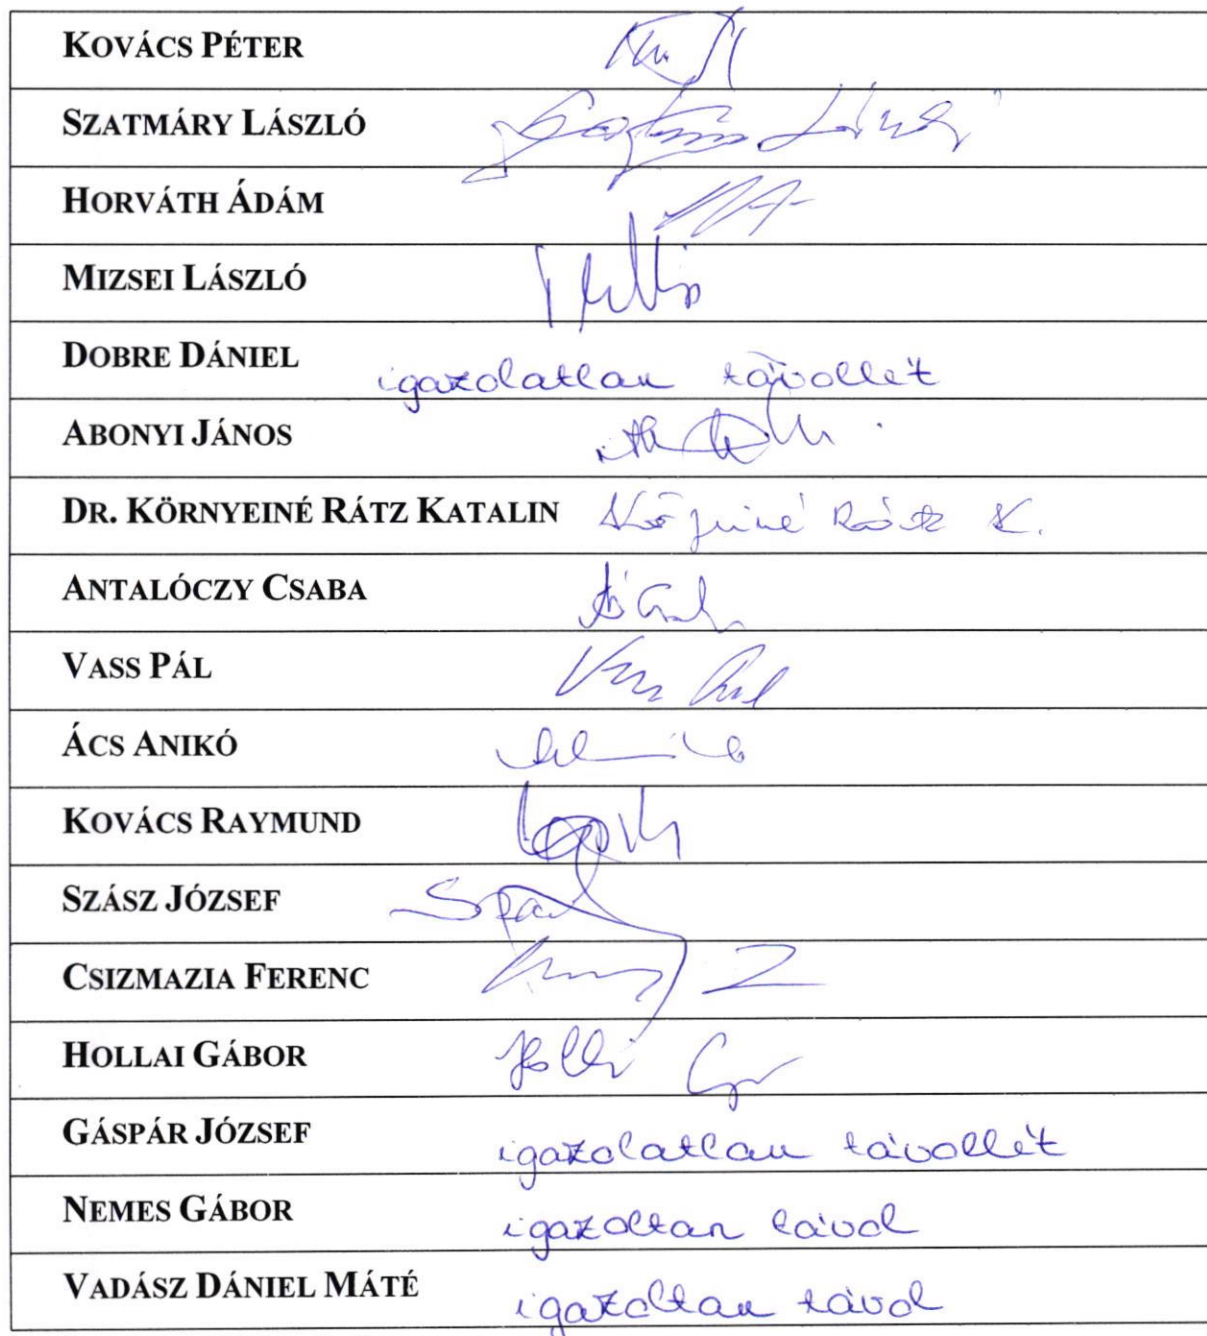 KOVÁCS PÉTER
SZATMÁRY LÁSZLÓ
HORVÁTH ÁDÁM
MIZSEI LÁSZLÓ
DOBRE DÁNIEL igazolatlan távollét
ABONYI JÁNOS
DR. KÖRNYEINÉ RÁTZ KATALIN Rátz K.
ANTALÓCZY CSABA
VASS PÁL
ÁCS ANIKÓ
KOVÁCS RAYMUND
SZÁSZ JÓZSEF
CSIZMAZIA FERENC
HOLLAI GÁBOR
GÁSPÁR JÓZSEF igazolatlan távollét
NEMES GÁBOR igazoltan távol
VADÁSZ DÁNIEL MÁTÉ igazoltan távol